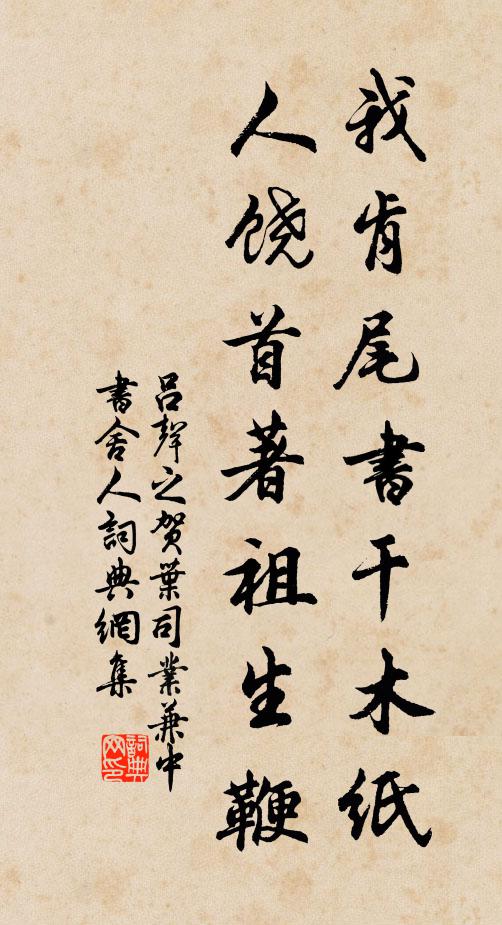 我肯尾書干木纸
人饶首著祖生鞭
吕聲之贺葉司業兼中
書舍人詞典網集
詞典网印